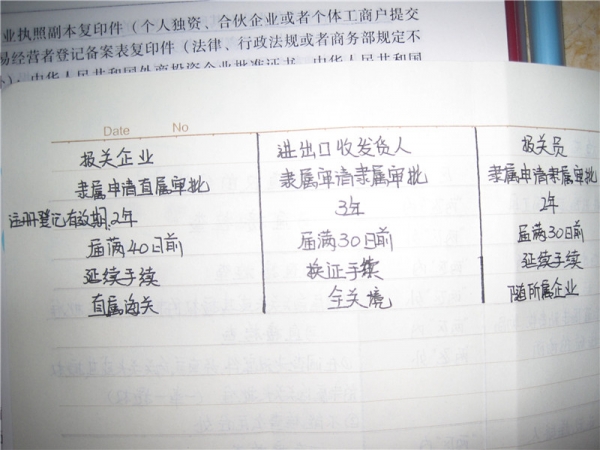 业执照副本复印件（个人独资、合伙企业或者个体工商户提交
易经营者登记备案表复印件（法律、行政法规或者商务部规定不
中华人民共和国外商投资企业批准证书、中华人民共和国
Date No
报关企业 进出口收发货人 报关员
隶属申请直属审批 隶属审请隶属审批 隶属申请隶属审批
注册登记有效期.2年 3年 2年
届满40日前 届满30日前 届满30日前
延续手续 换证手续 延续手续
直属海关 全关境 随所属企业